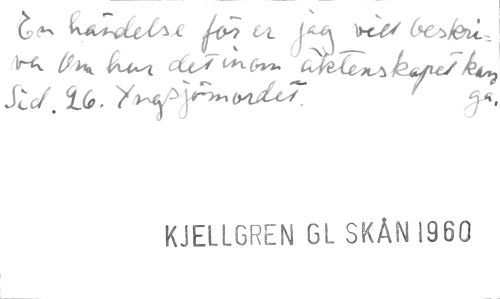 En händelse för er jag vill beskri-
va Om hur det inom äktenskapet kan
Sid. 26. Yngsjömordet. gå.
KJELLGREN GL SKÅN 1960